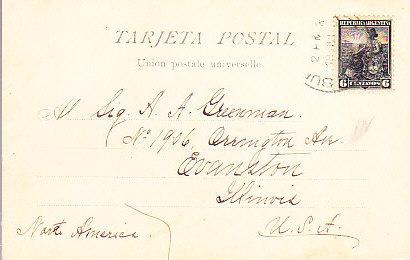 TARJETA POSTAL
Union postale universelle.
REPUBLICA ARGENTINA
6 CENTAVOS 6
BU
Al Sig. A. A. Greenman.
No. 1906, Orrington Av.
Evanston
Illinois
North America.
U.S.A.